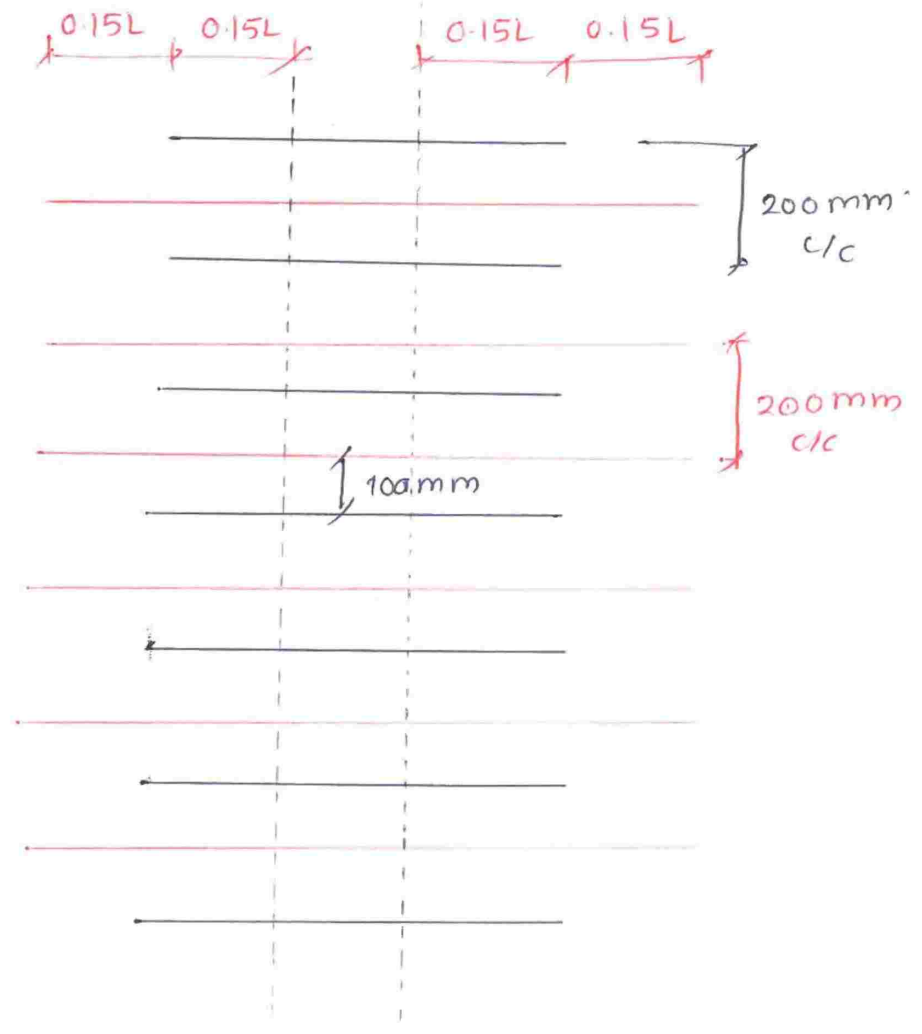 0.15L 0.15L 0.15L 0.15L
200 mm
c/c
200 mm
c/c
100 mm